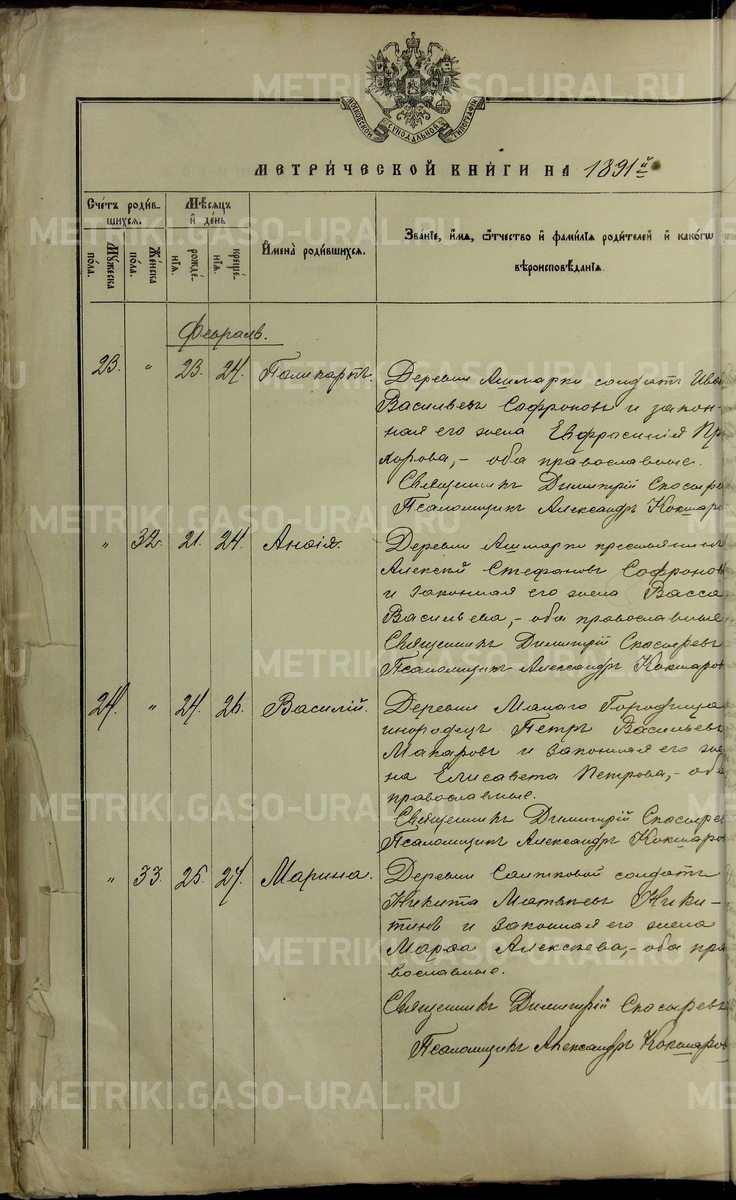 METRIKI.GASO-URAL.RU
МОСКОВСКОЙ СѴНОДАЛЬНОЙ ТИПОГРАФІИ
МЕТРИ́ЧЕСКОЙ КНИ́ГИ НА 1891й
Сче́тъ роди́в-
шихсѧ.
Мꙋ́жеска
по́ла.
Же́нска
по́ла.
Мѣ́сѧцъ
и҆ де́нь
рожде́-
нїѧ.
креще́-
нїѧ.
И҆мена̀ роди́вшихсѧ.
Зва́нїе, и҆́мѧ, ѻ҆́тчество и҆ фамі́лїѧ роди́телей и҆ како́гѡ
вѣроисповѣ́данїѧ.
Февраль.
23. " 23. 24. Поликарпъ.
Деревни Ашмарки солдатъ Ива
Васильевъ Софроновъ и закон-
ная его жена Евфросинія Пр
хорова, - оба православные.
Священникъ Димитрій Спосыре
Псаломщикъ Александръ Кокшаро
" 32. 21. 24. Анѳія.
Деревни Ашмарки крестьянинъ
Алексѣй Стефановъ Софроновъ
и законная его жена Васса
Васильева, - оба православные
Священникъ Димитрій Спосыревъ
Псаломщикъ Александръ Кокшаров
24. " 24. 26. Василій.
Деревни Малаго Городища
инородецъ Петръ Васильевъ
Макаровъ и законная его же-
на Елисавета Петрова, - оба
православные.
Священникъ Димитрій Спосырев
Псаломщикъ Александръ Кокшаров
" 33. 25. 27. Марина.
Деревни солдатъ
Никита Матвѣевъ Ники-
тинъ и законная его жена
Марѳа Алексѣева, - оба пра
вославные.
Священникъ Димитрій Спосыревъ
Псаломщикъ Александръ Кокшаров